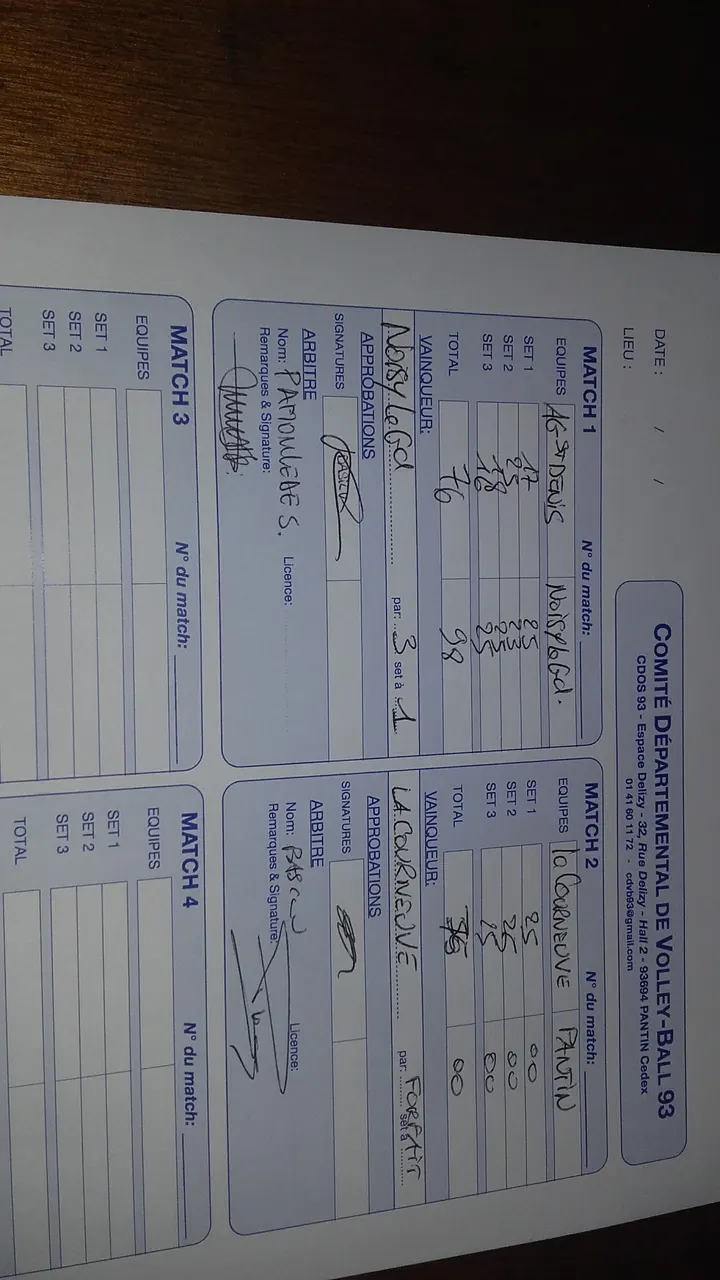 DATE : / /
LIEU :
COMITÉ DÉPARTEMENTAL DE VOLLEY-BALL 93
CDOS 93 - Espace Delizy - 32, Rue Delizy - Hall 2 - 93694 PANTIN Cedex
01 41 60 11 72 - cdvb93@gmail.com
MATCH 1 N° du match:
EQUIPES AG St DENIS Noisy le Gd.
SET 1 17 25
SET 2 25 23
SET 3 18 25
16 25
TOTAL 76 98
VAINQUEUR:
Noisy Le Gd par: 3 set à 1
APPROBATIONS
SIGNATURES
ARBITRE
Nom: Licence:
Remarques & Signature:
MATCH 2 N° du match:
EQUIPES la COURNEUVE PANTIN
SET 1 25 00
SET 2 25 00
SET 3 25 00
TOTAL 75 00
VAINQUEUR:
LA COURNEUVE par: FORFAIT set à
APPROBATIONS
SIGNATURES
ARBITRE
Nom: Licence:
Remarques & Signature:
MATCH 3 N° du match:
EQUIPES
SET 1
SET 2
SET 3
TOTAL
MATCH 4 N° du match:
EQUIPES
SET 1
SET 2
SET 3
TOTAL